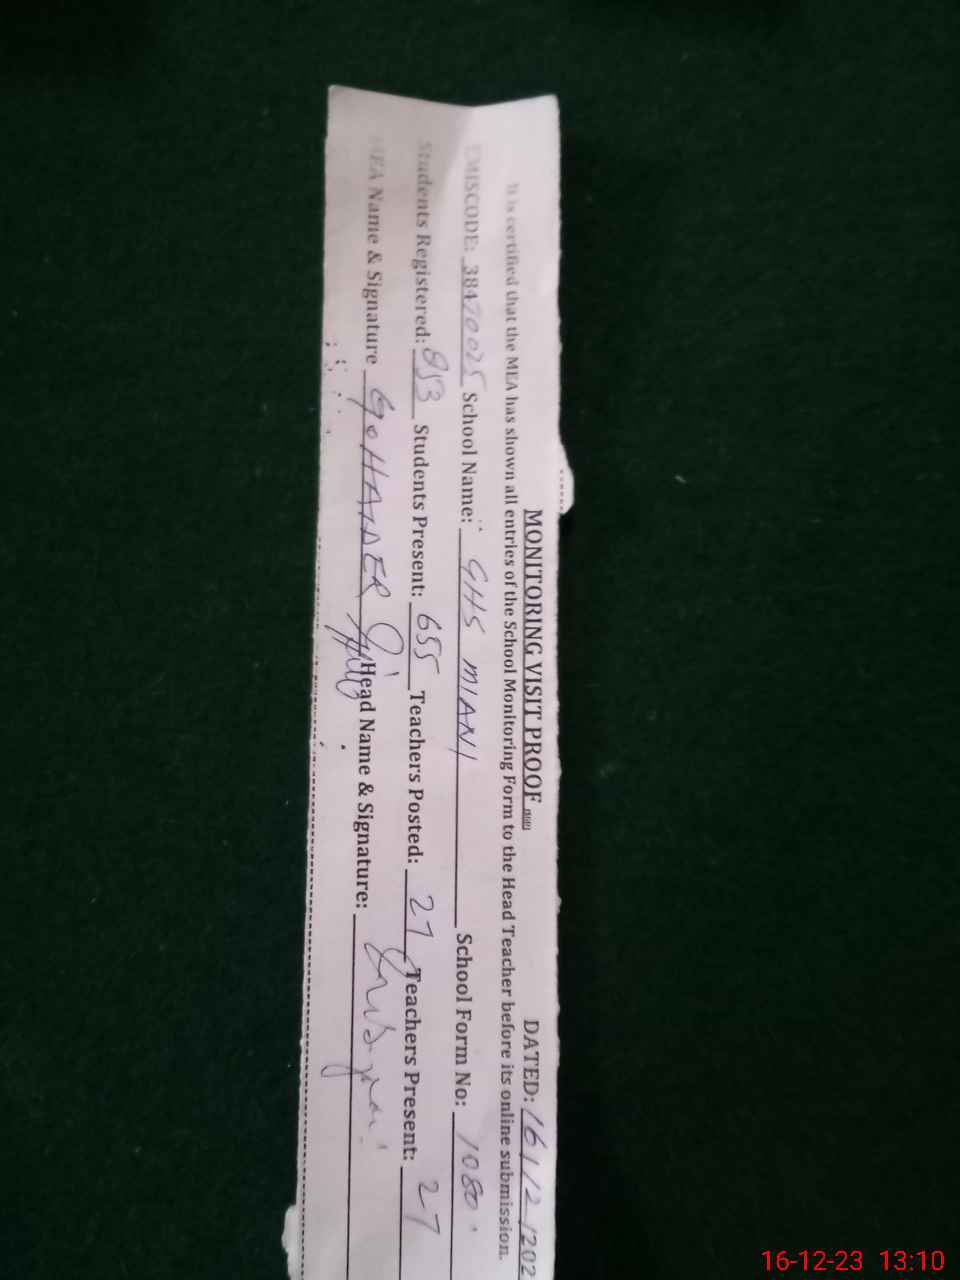 MONITORING VISIT PROOF DATED: 16/12/202
It is certified that the MEA has shown all entries of the School Monitoring Form to the Head Teacher before its online submission.
EMISCODE: 38470025 School Name: GHS MIANI School Form No: 1080
Students Registered: 853 Students Present: 655 Teachers Posted: 27 Teachers Present: 27
MEA Name & Signature G. HAIDER Head Name & Signature:
16-12-23 13:10